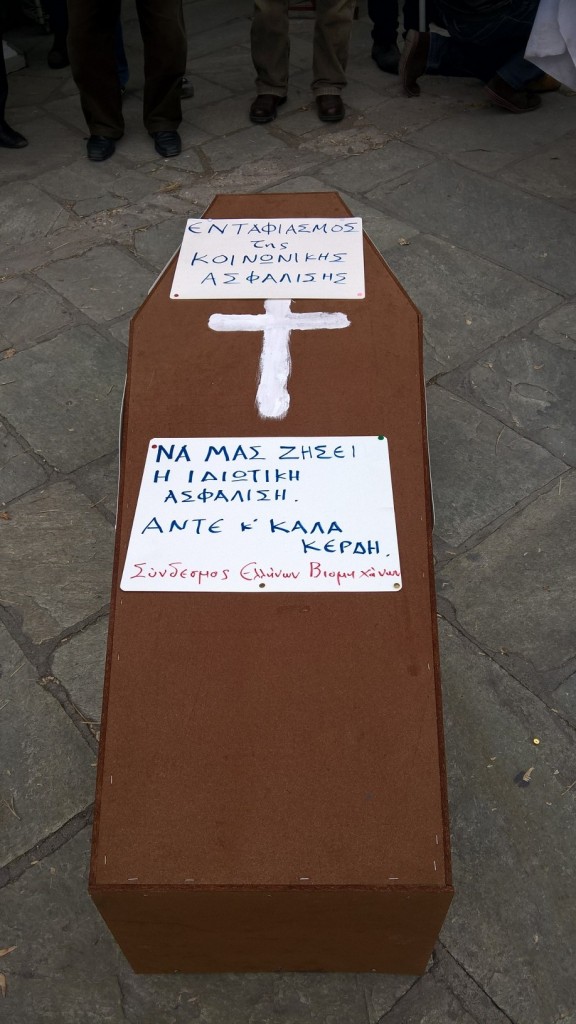 ΕΝΤΑΦΙΑΣΜΟΣ
της
ΚΟΙΝΩΝΙΚΗΣ
ΑΣΦΑΛΙΣΗΣ
ΝΑ ΜΑΣ ΖΗΣΕΙ
Η ΙΔΙΩΤΙΚΗ
ΑΣΦΑΛΙΣΗ.
ΑΝΤΕ Κ' ΚΑΛΑ
ΚΕΡΔΗ.
Σύνδεσμος Ελλήνων Βιομηχάνων